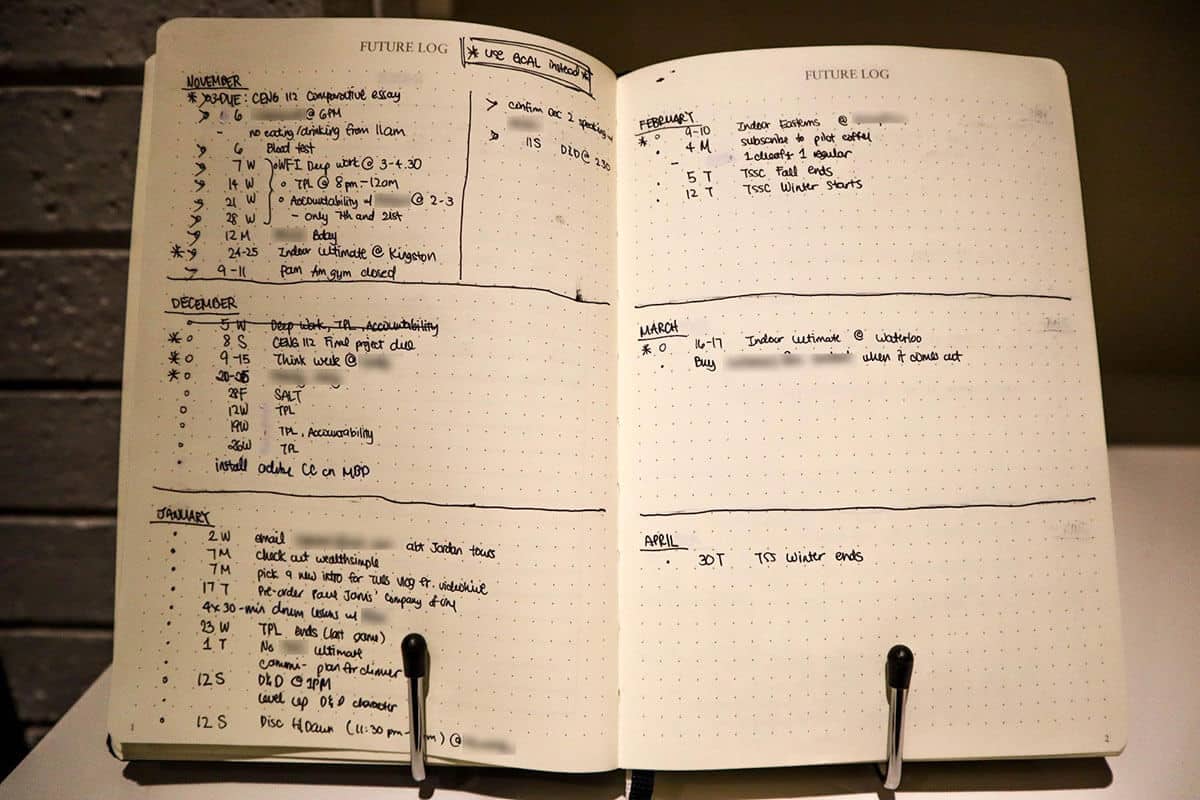 FUTURE LOG
* USE GCAL instead *
NOVEMBER
DUE: CENG 112 Comparative essay
6 @ 6PM
- no eating/drinking from 11am
6 Blood test
7 W WFI Deep work @ 3-4.30
14 W TPL @ 8pm-12am
21 W Accountability w/ @ 2-3
28 W - only 7th and 21st
12 M Bday
* 24-25 Indoor ultimate @ Kingston
9-11 Pam Am gym closed
> confirm Dec 2 speaking
11S D&D @ 230
DECEMBER
5 W Deep Work, TPL, Accountability
* o 8 S CENG 112 Final project due
* o 9-15 Think week @
* o 20-25
o 28F SALT
o 12W TPL
19W TPL, Accountability
o 26W TPL
• install adobe CC on MBP
JANUARY
• 2 W email abt Jordan tours
• 7M check out wealthsimple
• 7M pick a new intro for vlog fr. videohive
• 17 T Pre-order Paul Jarvis' Company of One
• 4x 30-min drum lessons w/
• 23 W TPL ends (last game)
• 1 T No ultimate
- plan for dinner
o 12 S D&D @ 1PM
• Level up D&D character
o 12 S Disc (11:30 pm- m) @
1
FUTURE LOG
FEBRUARY
* o 9-10 Indoor Easterns @
• 4 M subscribe to pilot coffee
- 1 regular
• 5 T TSSC Fall ends
• 12 T TSSC Winter starts
MARCH
* o 16-17 Indoor ultimate @ Waterloo
• Buy when it comes out
APRIL
• 30 T TSS Winter ends
2